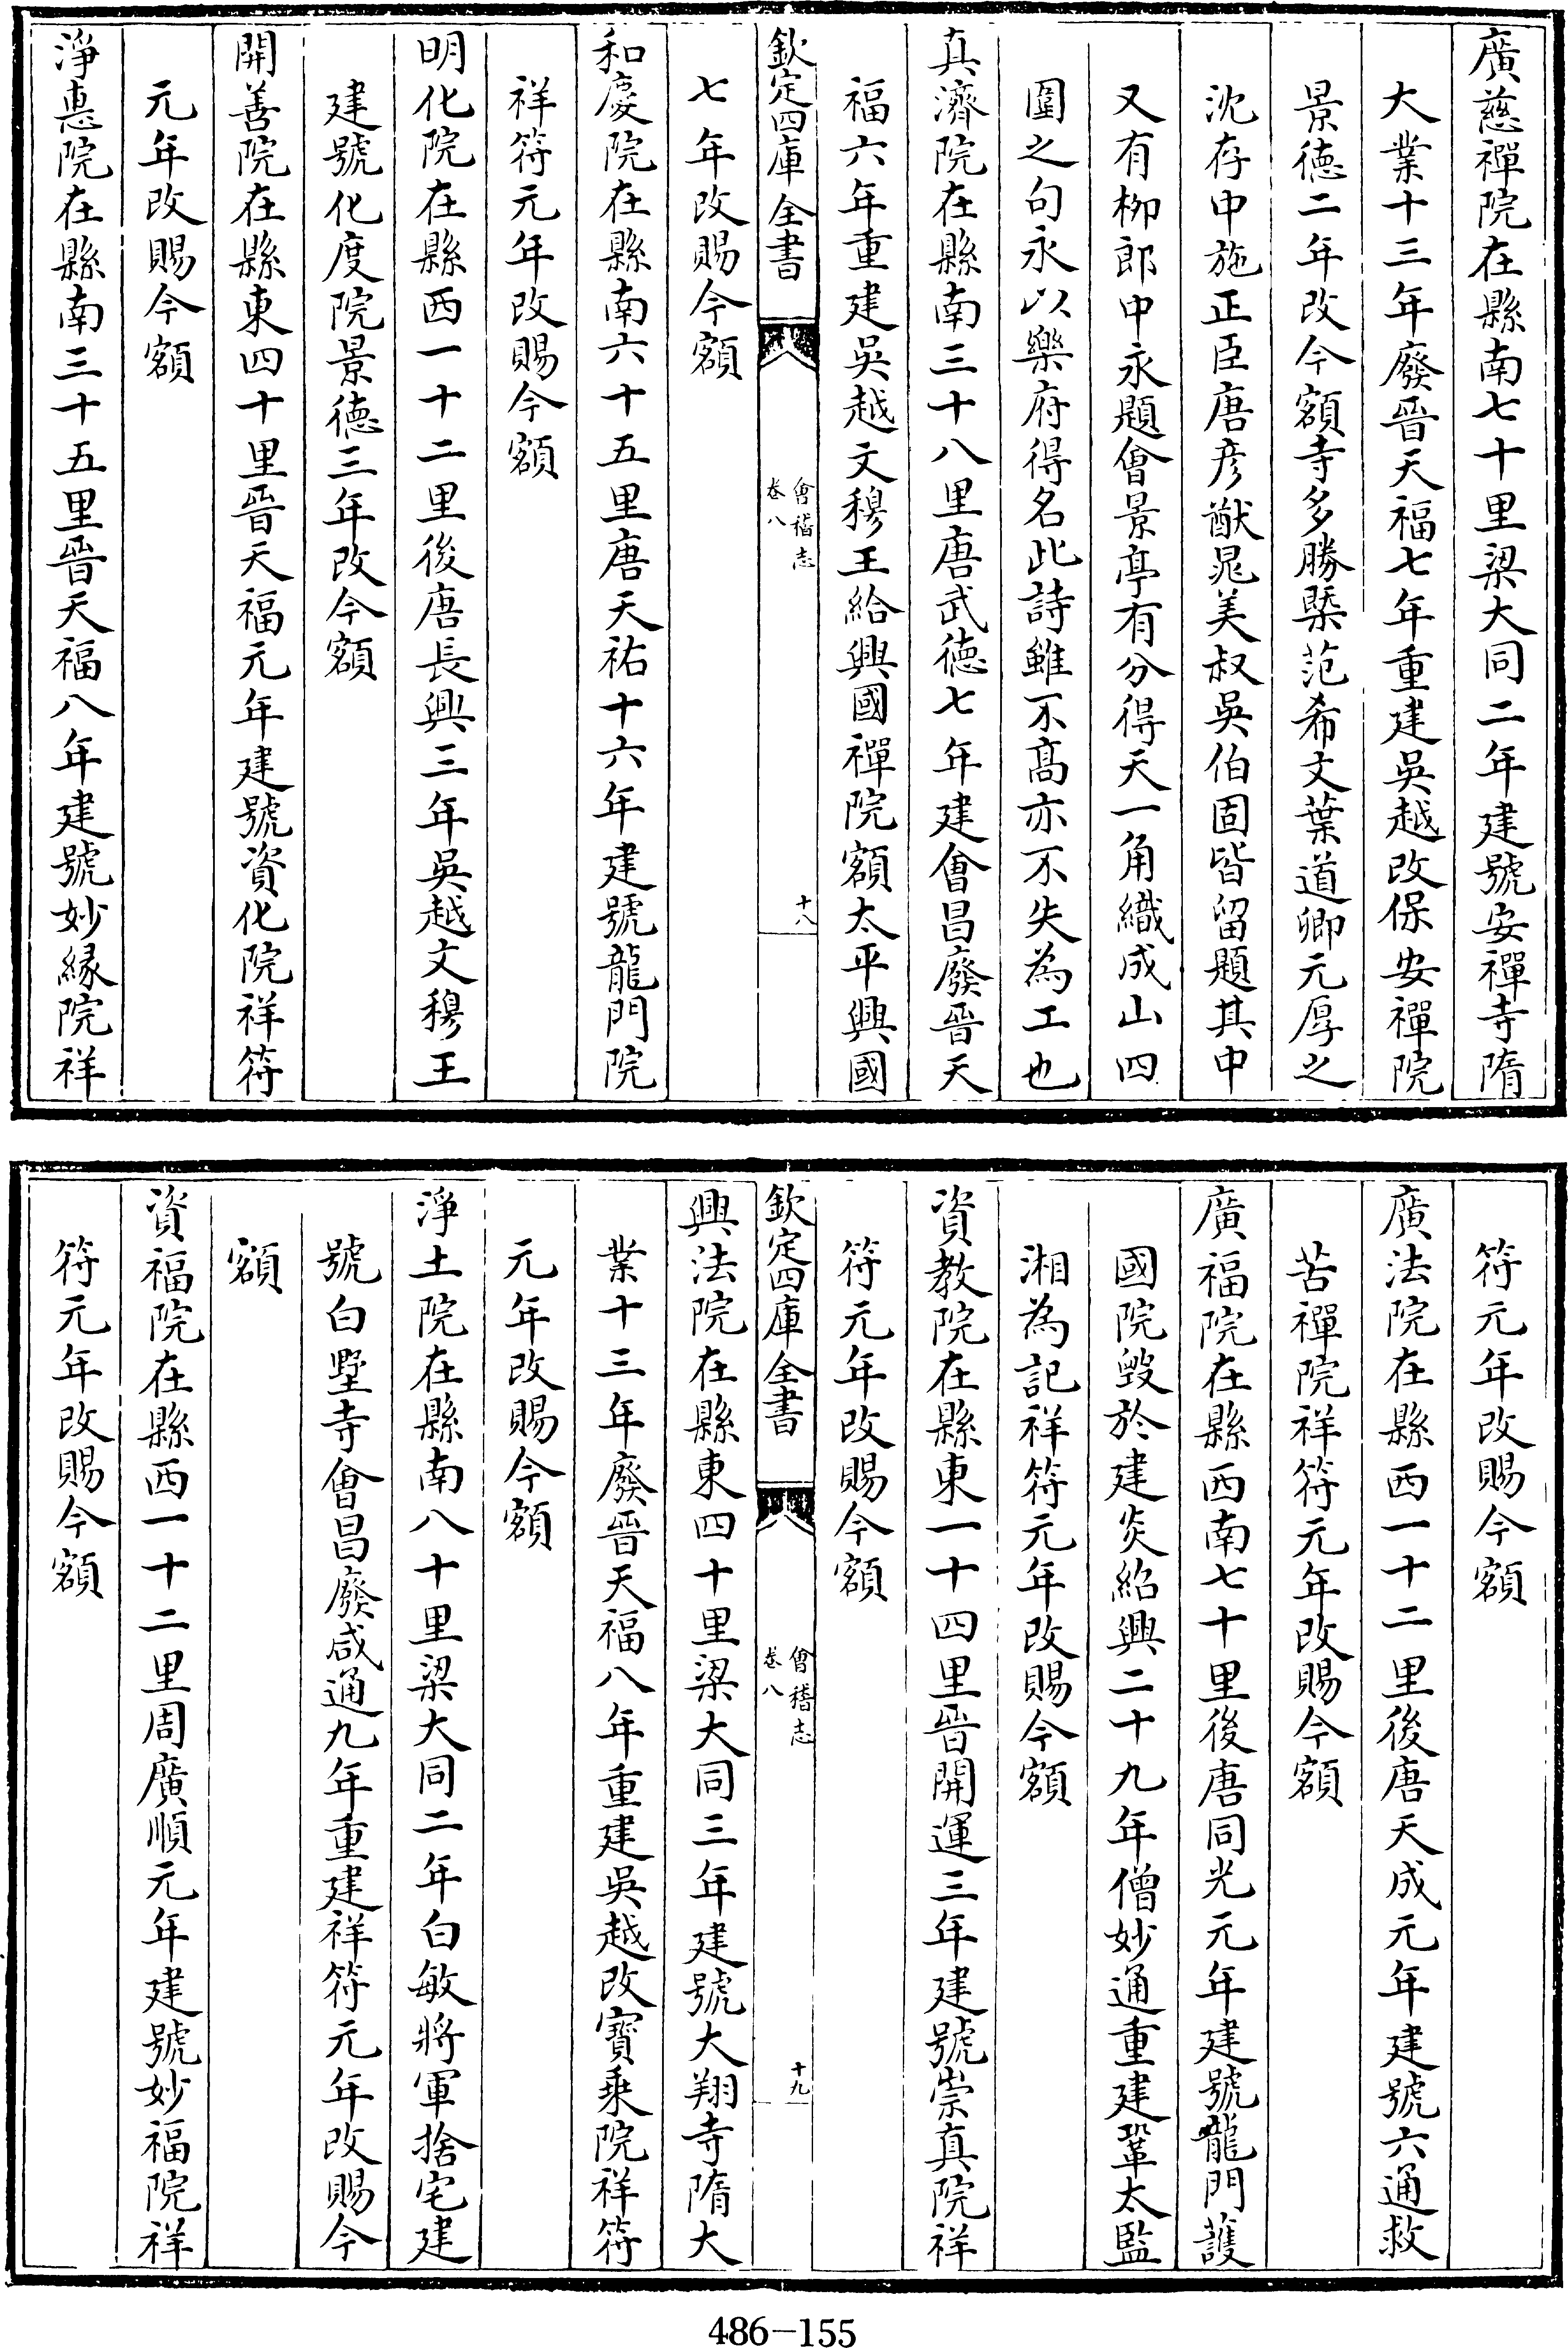 廣慈禪院在縣南七十里梁大同二年建號安禪寺隋
大業十三年廢晉天福七年重建吳越改保安禪院
景徳二年改今額寺多勝槩范希文葉道卿元厚之
沈存中施正臣唐彦猷晁美叔吳伯固皆留題其中
又有栁郎中永題會景亭有分得天一角織成山四
圍之句永以樂府得名此詩雖不髙亦不失為工也
真濟院在縣南三十八里唐武徳七年建會昌廢晉天
福六年重建吳越文穆王給興國禪院額太平興國
欽定四庫全書
會稽志
卷八
十八
七年改賜今額
和慶院在縣南六十五里唐天祐十六年建號龍門院
祥符元年改賜今額
明化院在縣西一十二里後唐長興三年吳越文穆王
建號化度院景徳三年改今額
開善院在縣東四十里晉天福元年建號資化院祥符
元年改賜今額
淨惠院在縣南三十五里晉天福八年建號妙緣院祥
符元年改賜今額
廣法院在縣西一十二里後唐天成元年建號六通救
苦禪院祥符元年改賜今額
廣福院在縣西南七十里後唐同光元年建號龍門護
國院毀於建炎紹興二十九年僧妙通重建鞏太監
湘為記祥符元年改賜今額
資教院在縣東一十四里晉開運三年建號崇真院祥
符元年改賜今額
欽定四庫全書
會稽志
卷八
十九
興法院在縣東四十里梁大同三年建號大翔寺隋大
業十三年廢晉天福八年重建吳越改寶乗院祥符
元年改賜今額
淨土院在縣南八十里梁大同二年白敏將軍捨宅建
號白墅寺會昌廢咸通九年重建祥符元年改賜今
額
資福院在縣西一十二里周廣順元年建號妙福院祥
符元年改賜今額
486-155